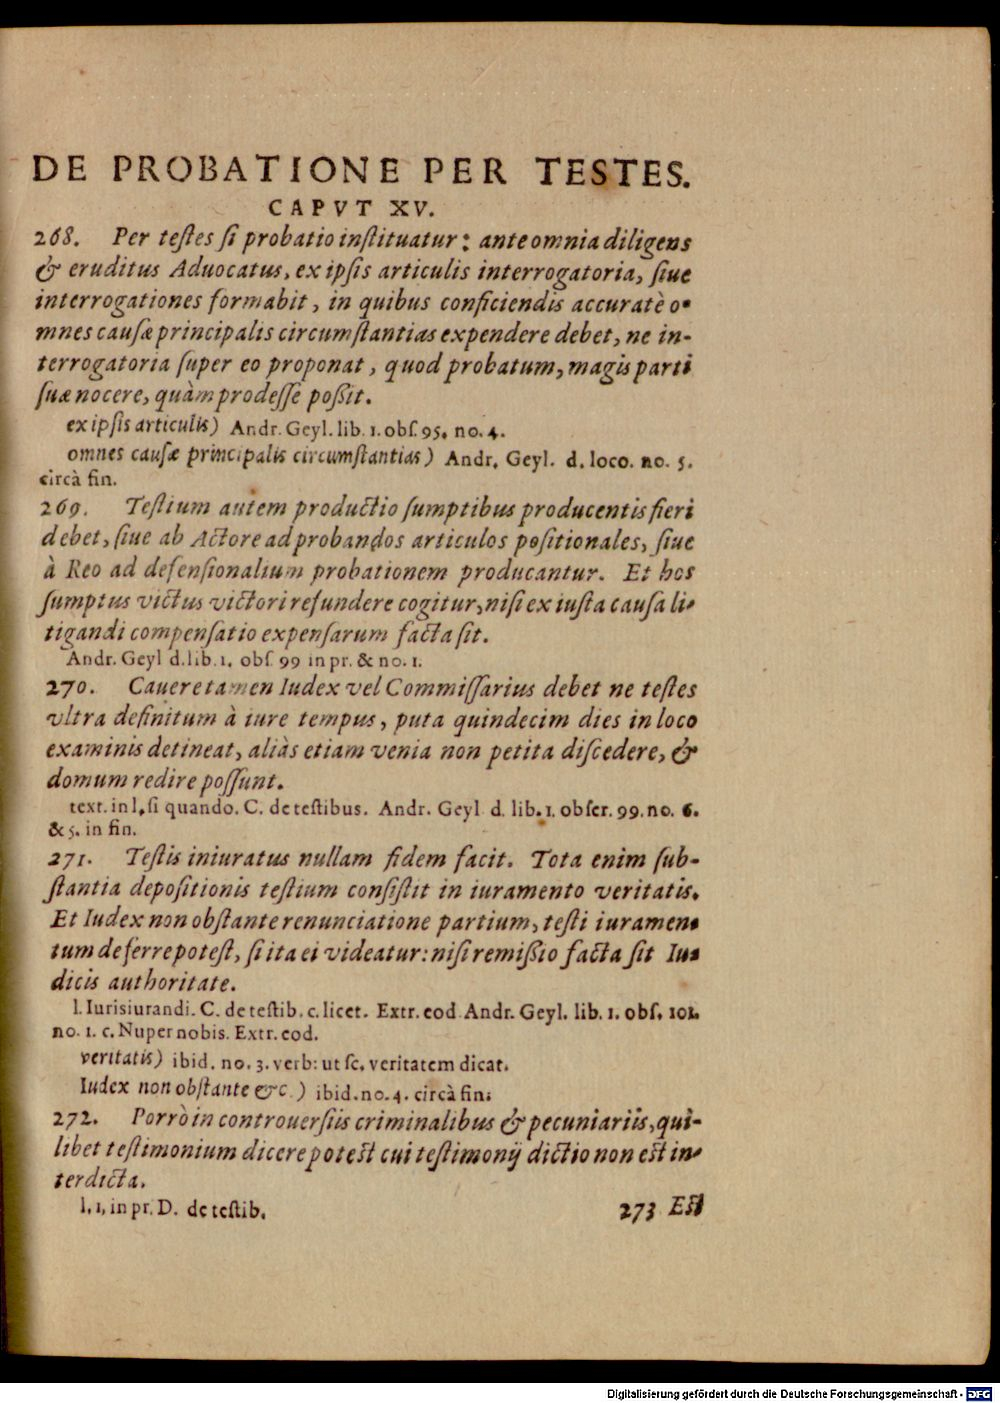 DE PROBATIONE PER TESTES.
CAPVT XV.
268. Per teſtes ſi probatio inſtituatur: ante omnia diligens
& eruditus Aduocatus, ex ipſis articulis interrogatoria, ſiue
interrogationes formabit, in quibus conficiendis accuratè o-
mnes cauſæ principalis circumſtantias expendere debet, ne in-
terrogatoria ſuper eo proponat, quod probatum, magis parti
ſuæ nocere, quàm prodeſſe poßit.
ex ipſis articulis) Andr. Geyl. lib. 1. obſ. 95. no. 4.
omnes cauſæ principalis circumſtantias) Andr. Geyl. d. loco. no. 5.
circà fin.
269. Teſtium autem productio ſumptibus producentis fieri
debet, ſiue ab Actore ad probandos articulos poſitionales, ſiue
à Reo ad defenſionalium probationem producantur. Et hos
ſumptus victus victori refundere cogitur, niſi ex iuſta cauſa li-
tigandi compenſatio expenſarum facta ſit.
Andr. Geyl d. lib. 1. obſ 99 in pr. & no. 1.
270. Cauere tamen Iudex vel Commiſſarius debet ne teſtes
vltra definitum à iure tempus, puta quindecim dies in loco
examinis detineat, aliàs etiam venia non petita diſcedere, &
domum redire poſſunt.
text. in l. ſi quando. C. de teſtibus. Andr. Geyl d. lib. 1. obſer. 99. no. 6.
& 5. in fin.
271. Teſtis iniuratus nullam fidem facit. Tota enim ſub-
ſtantia depoſitionis teſtium conſiſtit in iuramento veritatis.
Et Iudex non obſtante renunciatione partium, teſti iuramen-
tum deferre poteſt, ſi ita ei videatur: niſi remißio facta ſit Iu-
dicis authoritate.
l. Iurisiurandi. C. de teſtib. c. licet. Extr. eod Andr. Geyl. lib. 1. obſ. 101.
no. 1. c. Nuper nobis. Extr. eod.
veritatis) ibid. no. 3. verb: ut ſc. veritatem dicat.
Iudex non obſtante &c.) ibid. no. 4. circà fin.
272. Porrò in controuerſiis criminalibus & pecuniariis, qui-
libet teſtimonium dicere poteſt cui teſtimonij dictio non eſt in-
terdicta.
l. 1. in pr. D. de teſtib.
273 Eſt
Digitalisierung gefördert durch die Deutsche Forschungsgemeinschaft - DFG